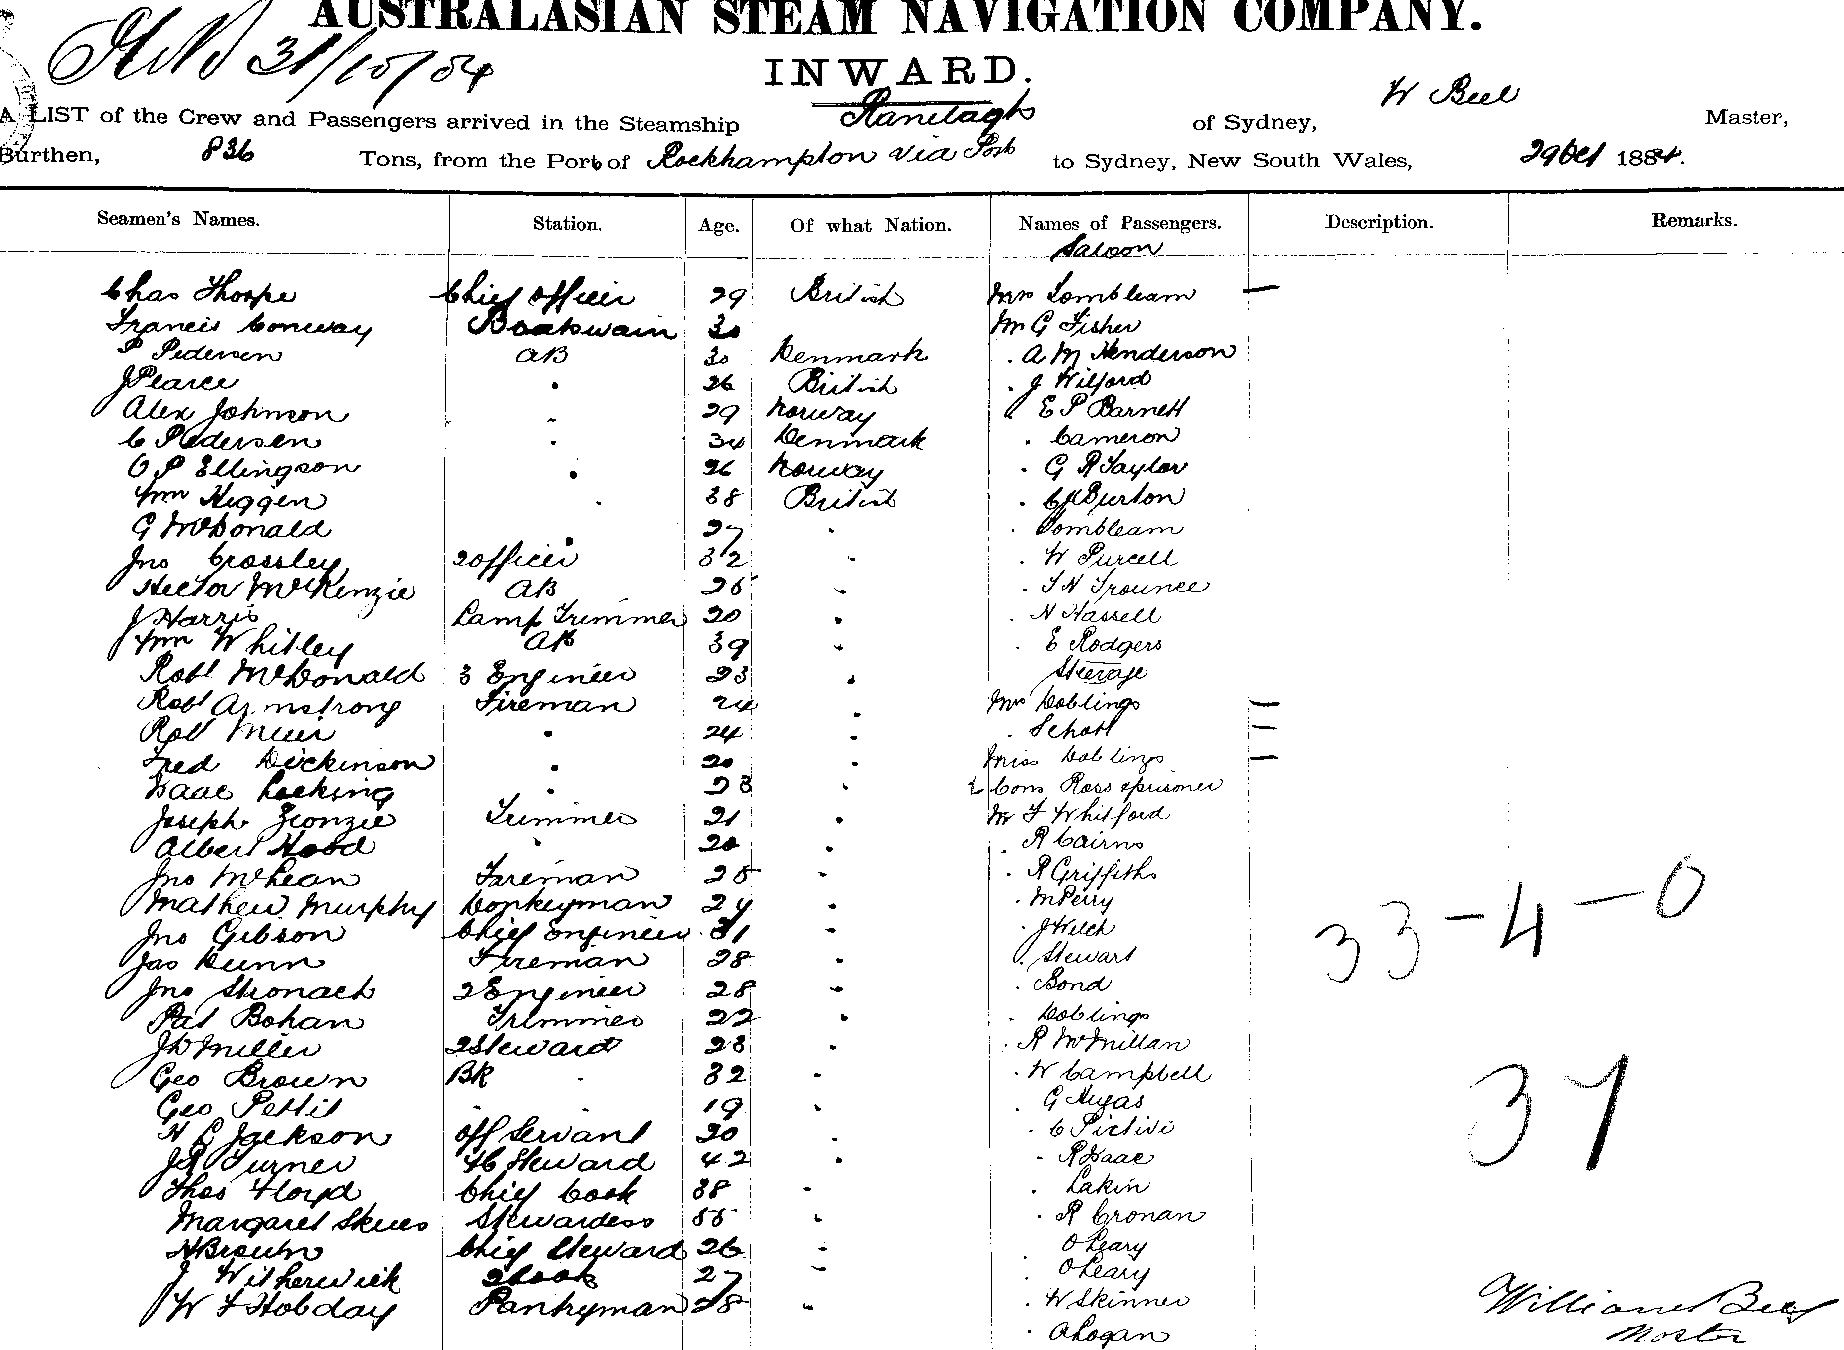 AUSTRALASIAN STEAM NAVIGATION COMPANY.
31/10/84
INWARD.
A LIST of the Crew and Passengers arrived in the Steamship Ranelagh of Sydney, W Beel Master,
Burthen, 836 Tons, from the Port of Rockhampton via Ports to Sydney, New South Wales, 29 Oct 1884.
Seamen's Names. Station. Age. Of what Nation. Names of Passengers. Description. Remarks.
Saloon
Chas Thorpe Chief officer 29 British Mrs Tombleam —
Francis Conway Boatswain 30 Mr G Fisher
P Pedersen AB 30 Denmark . A M Henderson
J Pearce . 26 British . J Wilford
Alex Johnson . 29 Norway E P Barnett
C Pedersen . 34 Denmark . Cameron
O P Ellingson . 26 Norway . G R Taylor
Wm Higgen . 38 British . Burton
G McDonald . 27 . . Tombleam
Jno Crossley 2 officer 32 . . W Purcell
Hector McKenzie AB 25 . . T H Trounce
J Harris Lamp Trimmer 20 . . H Hassell
Wm Whitley AB 39 . . E Rodgers
Robt McDonald 3 Engineer 23 . Steerage
Robt Armstrong Fireman 24 . Mrs Doblings —
Robt Muir . 24 . . Schott —
Fred Dickinson . 20 . Miss Doblings —
Isaac Hocking . 23 . Cons Ross & prisoner
Joseph Trimmer 21 . Mr F Whitford
Albert Hood . 20 . . R Cairns
Jno McLean Fireman 25 . . R Griffiths
Mathew Murphy Donkeyman 24 . . M Perry
Jno Gibson Chief Engineer 31 . . J Welch
Jas Dunn Fireman 28 . . Stewart
33 — 4 — 0
Jno Stronach 2 Engineer 28 . . Bond
Pat Bohan Trimmer 22 . . Doblings
J D Miller 2 Steward 23 . . R McMillan
Geo Brown BK . 32 . . W Campbell
37
Geo Pettit . . 19 . . G
H L Jackson off Servant 20 . . C
J R Turner Steward 42 . . R Isaac
Thos Floyd Chief Cook 38 . . Lakin
Margaret Skues Stewardess 55 . . R Cronan
H Brown Chief Steward 26 . . O Leary
J Witherwick 2 Cook 27 . . O Leary
W F Hobday Pantryman 28 . . W Skinner
. Logan
William Beel
Master